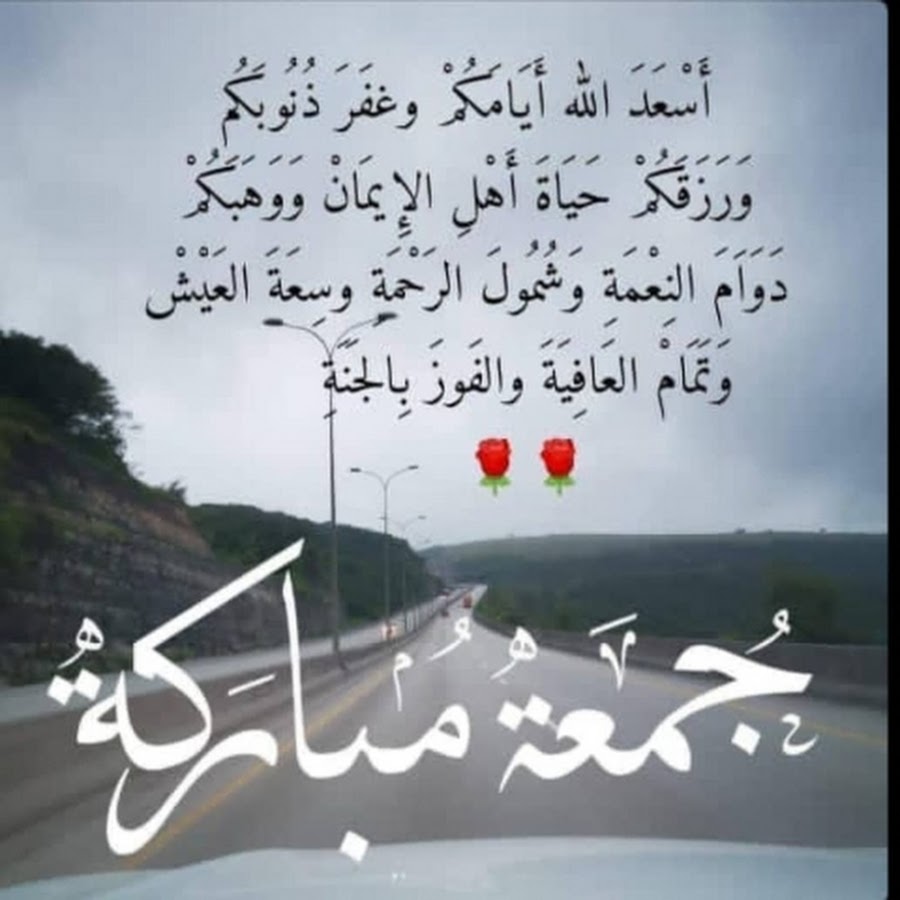 أَسْعَدَ الله أَيَامَكُمْ وغفَرَ ذُنُوبَكُم
وَرَزَقَكُمْ حَيَاةَ أَهْلِ الإِيمَانْ وَوَهَبَكُمْ
دَوَامَ النِعْمَةِ وَشُمُولَ الرَحْمَةِ وسِعَةَ العَيْشْ
وَتَمَامْ العَافِيَةَ والفَوزَ بِالجَنَةِ
جُمعَةُ مُبارَكةُ